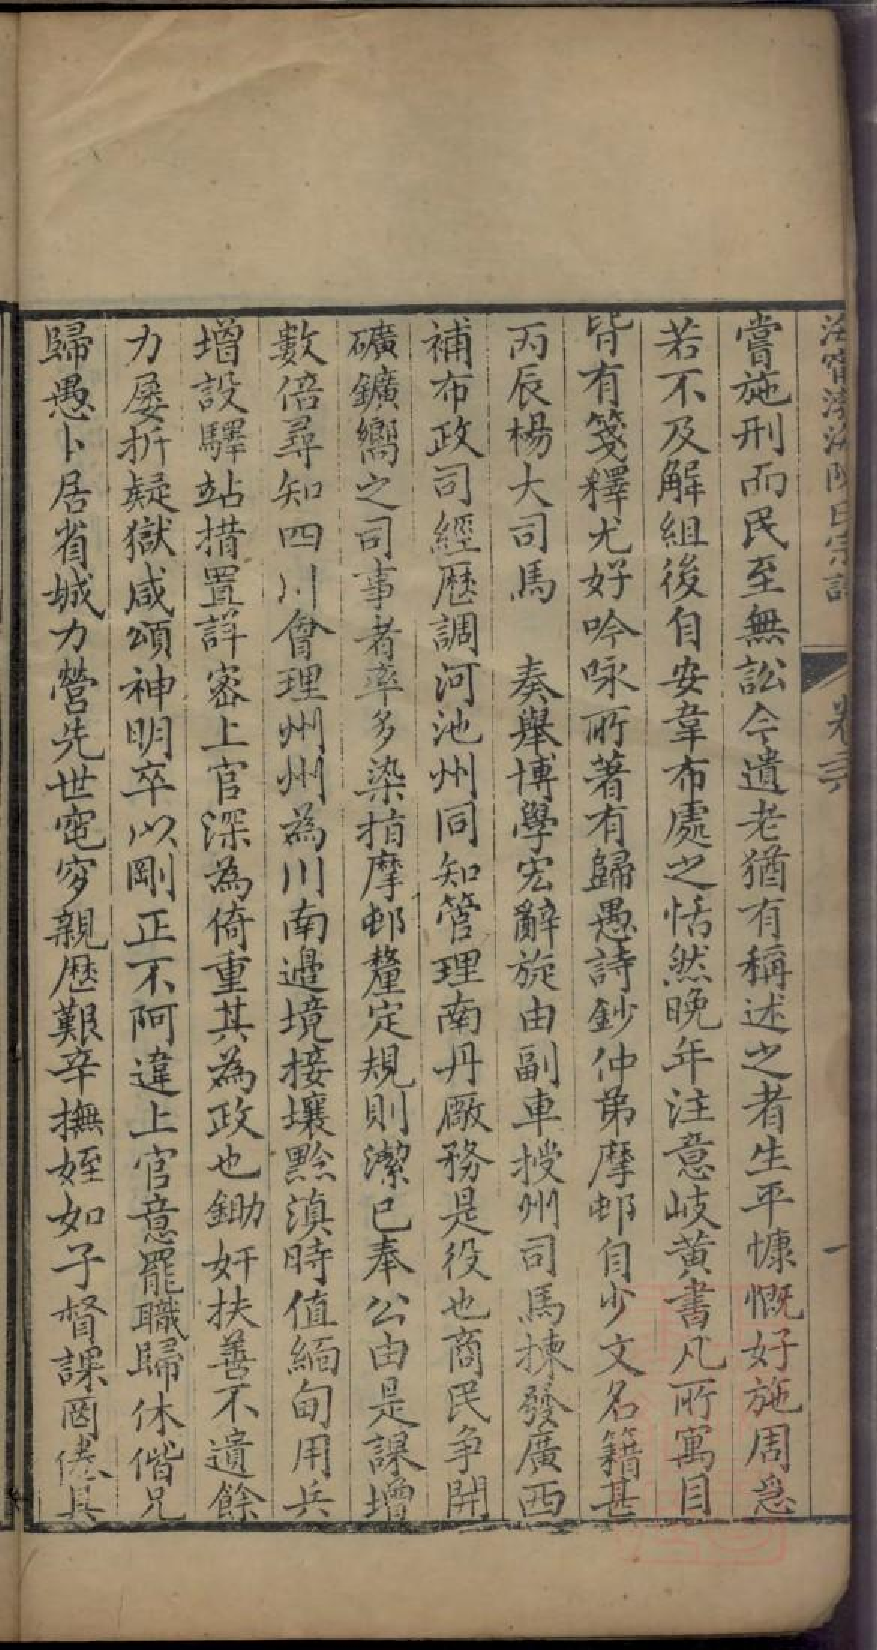 海寧渤海陳氏宗譜
卷二
一
嘗施刑而民至無訟今遺老猶有稱述之者生平慷慨好施周急
若不及解組後自安韋布處之恬然晚年注意岐黃書凡所寓目
皆有箋釋尤好吟咏所著有歸愚詩鈔仲弟摩邨自少文名籍甚
丙辰楊大司馬 奏舉博學宏辭旋由副車授州司馬揀發廣西
補布政司經歷調河池州同知管理南丹廠務是役也商民争開
礦鑛嚮之司事者率多染指摩邨釐定規則潔已奉公由是課增
數倍尋知四川會理州州為川南邊境接壤黔滇時值緬甸用兵
增設驛站措置詳密上官深為倚重其為政也鋤奸扶善不遺餘
力屢折疑獄咸頌神明卒以剛正不阿違上官意罷職歸休偕兄
歸愚卜居省城力營先世窀穸親歷艱辛撫姪如子督課罔倦具